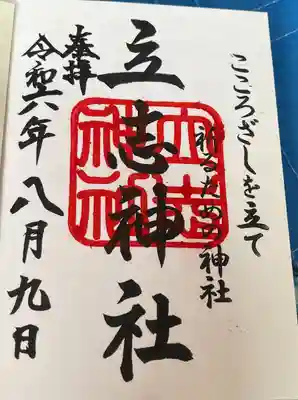 こころざしを立て
祈るための神社
立志神社
奉拝
令和六年八月九日
立志神社